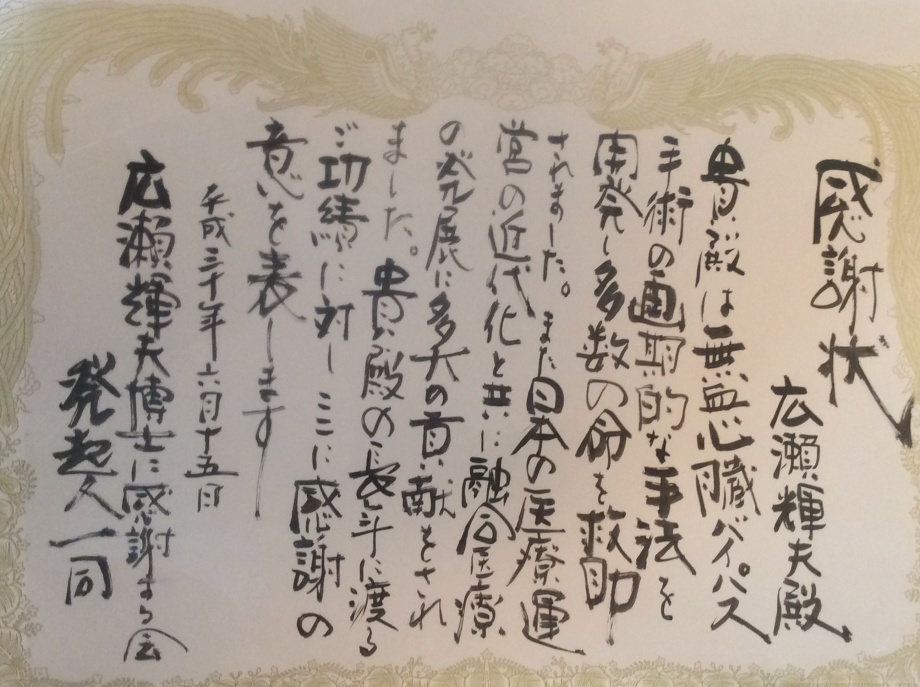 感謝状
広瀬輝夫殿
貴殿は無血心臓バイパス
手術の画期的な手法を
開発し多数の命を救助
されました。また日本の医療運
営の近代化と共に融合医療
の発展に多大の貢献をされ
ました。貴殿の長年に渡る
ご功績に対しここに感謝の
意を表します
平成三十年六月十五日
広瀬輝夫博士に感謝する会
発起人一同